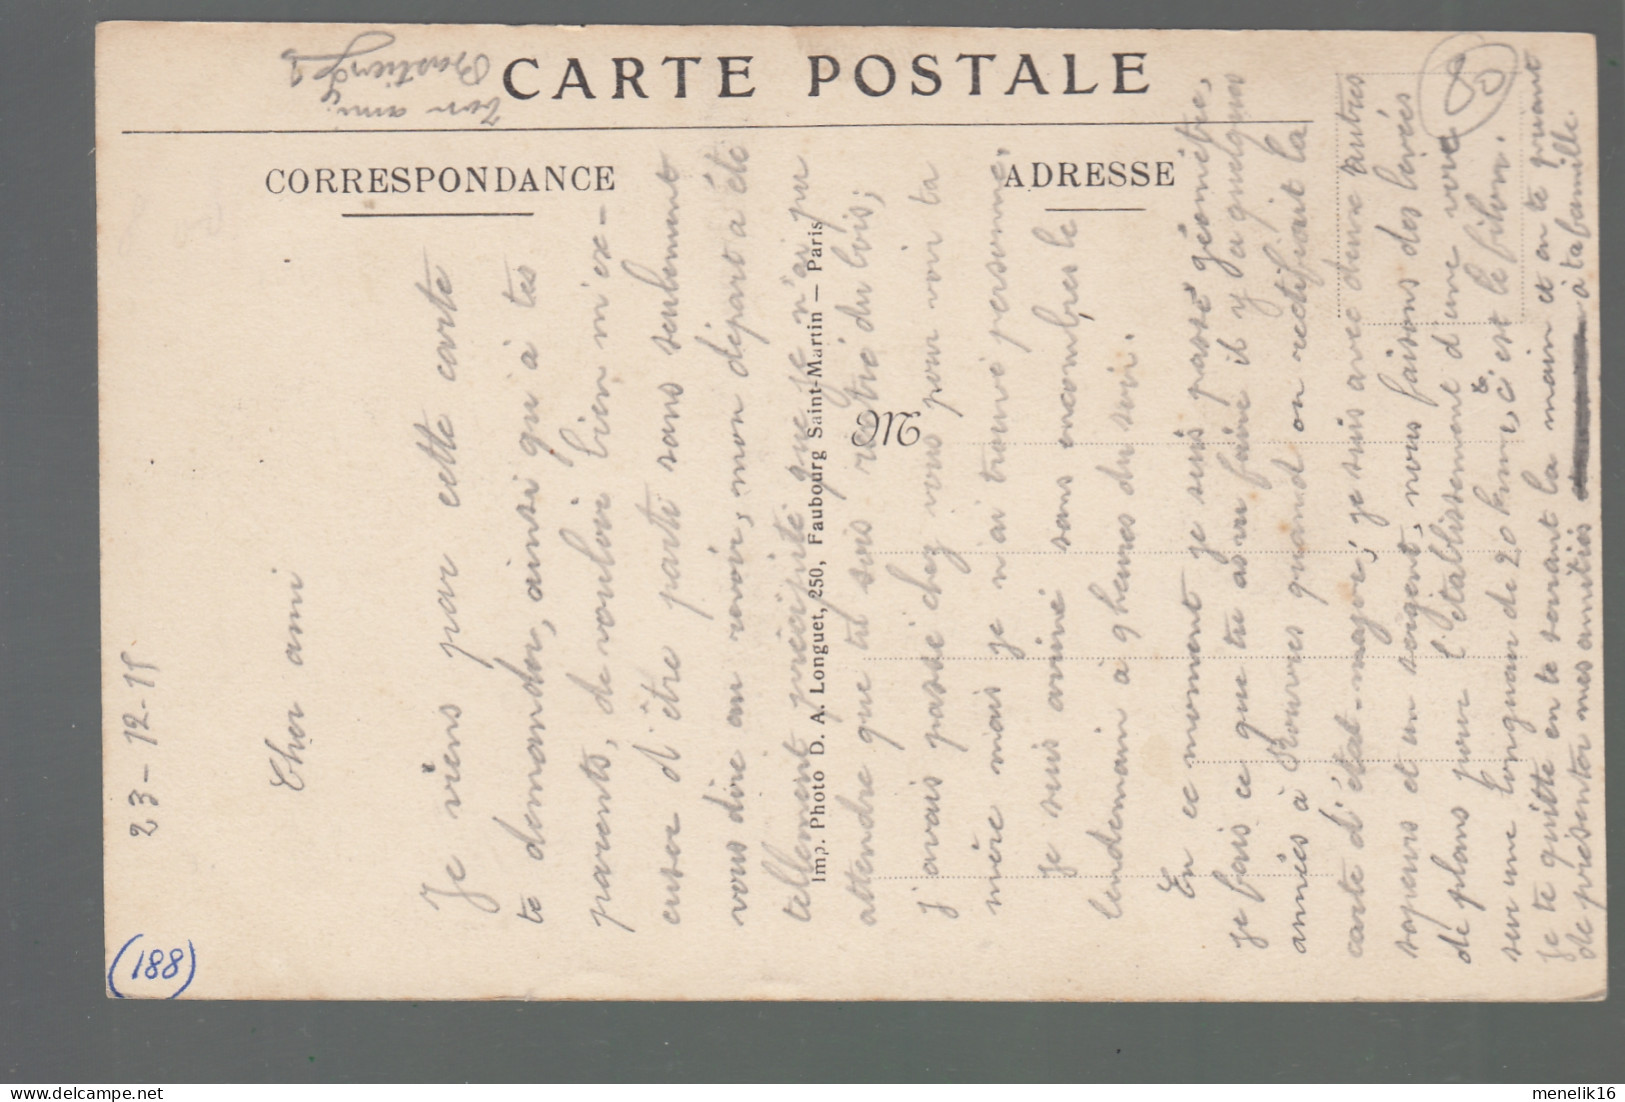 CARTE POSTALE
CORRESPONDANCE
ADRESSE
M
Imp. Photo D. A. Longuet, 250, Faubourg Saint-Martin — Paris
23-12-15
Cher ami
Je viens par cette carte
te demander, ainsi qu'à tes
parents, de vouloir bien m'ex-
cuser d'être parti sans seulement
vous dire au revoir, mon départ a été
tellement précipité que je n'ai pu
attendre que tu sois rentré du bois;
j'avais passé chez vous pour voir ta
mère mais je n'ai trouvé personne.
Je suis arrivé sans encombres le
lendemain à 9 heures du soir.
En ce moment je suis passé géomètre,
je fais ce que tu as vu faire il y a quelques
années à Rouvres quand on rectifiait la
carte d'état-major; je suis avec deux autres
sapeurs et un sergent, nous faisons des levées
de plans pour l'établissement d'une voie
sur une longueur de 20 kms, c'est le filon.
Je te quitte en te serrant la main et en te priant
de présenter mes amitiés à ta famille.
Ton ami
Bastien
80
(188)
menelik16